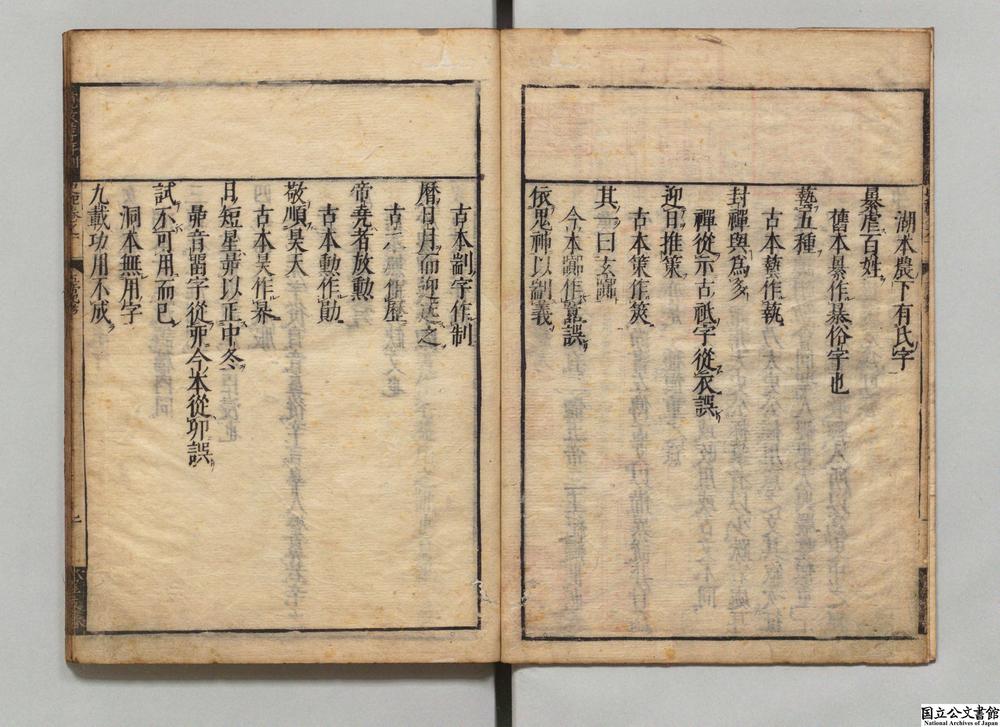 湖本農下有氏字
暴虐百姓
舊本暴作㬥俗字也
蓺五種
古本蓺作執
封禪與爲多
禪從示古祇字從衣誤
迎日推策
古本策作筴
其一曰玄囂
今本囂作嚚誤
依鬼神以剬義
古本剬字作制
曆日月而迎送之
古本無
帝堯者放勳
古本勳作勛
敬順昊天
古本昊作
日短星昴以正中冬
昴音留字從丣今本從卯誤
試不可用而已
洞本無用字
九載功用不成
国立公文書館
National Archives of Japan